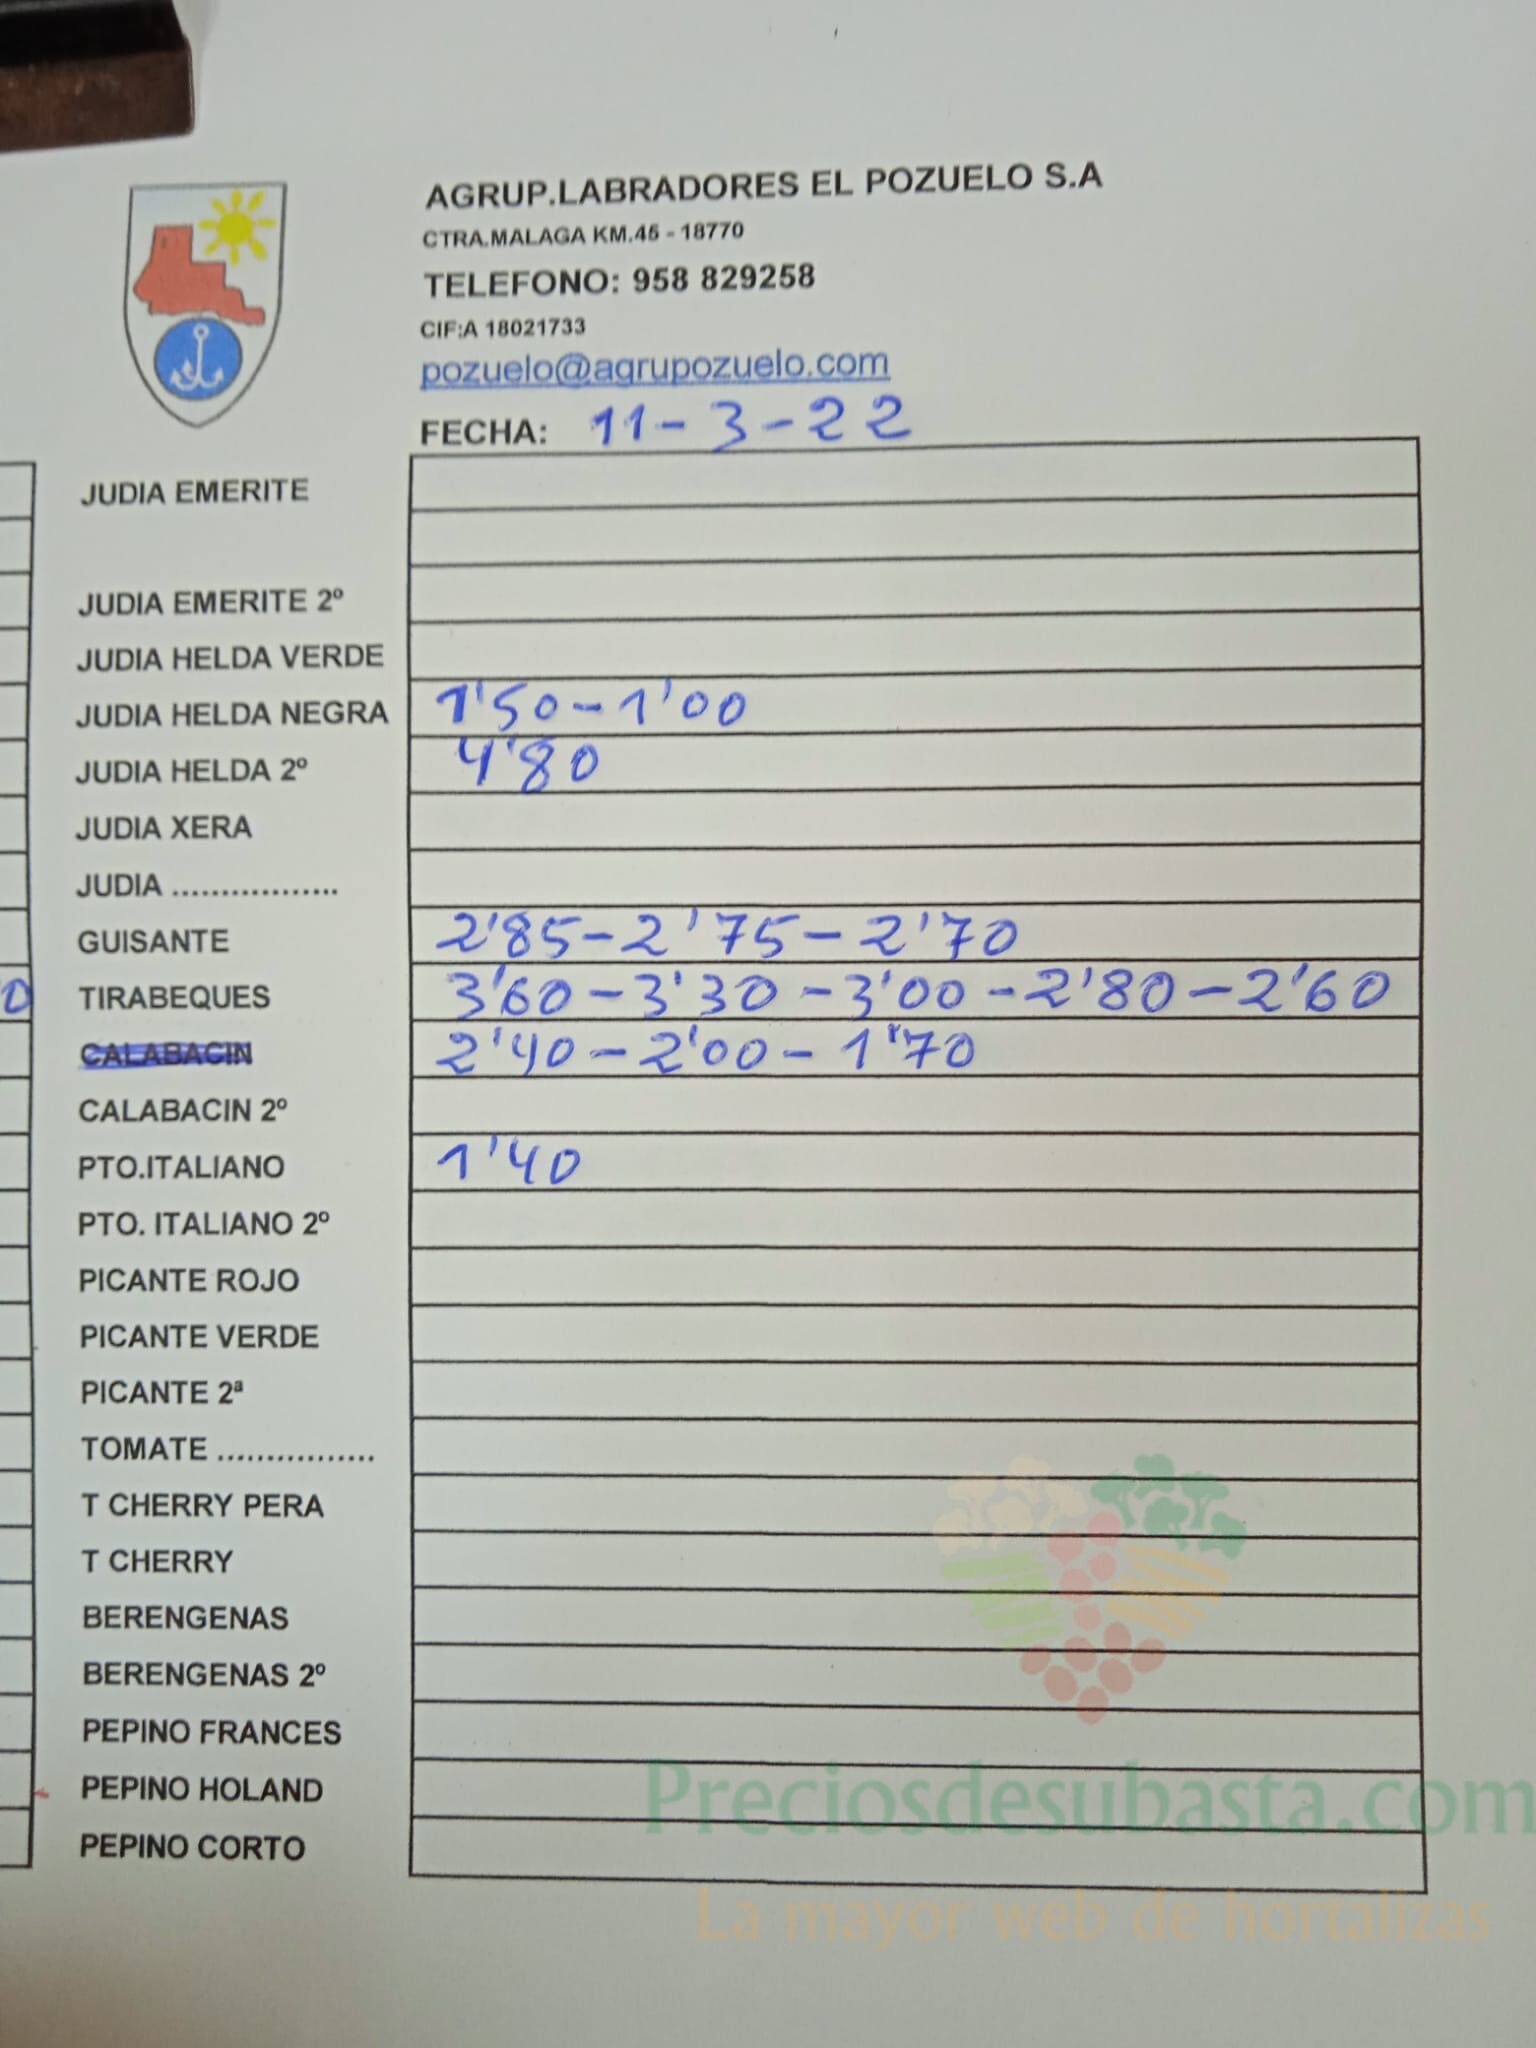 AGRUP.LABRADORES EL POZUELO S.A
CTRA.MALAGA KM.45 - 18770
TELEFONO: 958 829258
CIF:A 18021733
pozuelo@agrupozuelo.com
FECHA: 11-3-22
JUDIA EMERITE
JUDIA EMERITE 2º
JUDIA HELDA VERDE
JUDIA HELDA NEGRA 1'50-1'00
JUDIA HELDA 2º 4'80
JUDIA XERA
JUDIA .................
GUISANTE 2'85-2'75-2'70
0 TIRABEQUES 3'60-3'30-3'00-2'80-2'60
CALABACIN 2'40-2'00-1'70
CALABACIN 2º
PTO.ITALIANO 1'40
PTO. ITALIANO 2º
PICANTE ROJO
PICANTE VERDE
PICANTE 2ª
TOMATE ................
T CHERRY PERA
T CHERRY
BERENGENAS
BERENGENAS 2º
PEPINO FRANCES
PEPINO HOLAND
PEPINO CORTO
Preciosdesubasta.com
La mayor web de hortalizas